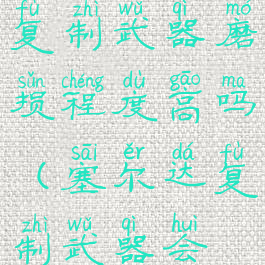 fù zhì wǔ qì mó
复制武器磨
sǔn chéng dù gāo ma
损程度高吗
sāi ěr dá fù
（塞尔达复
zhì wǔ qì huì
制武器会